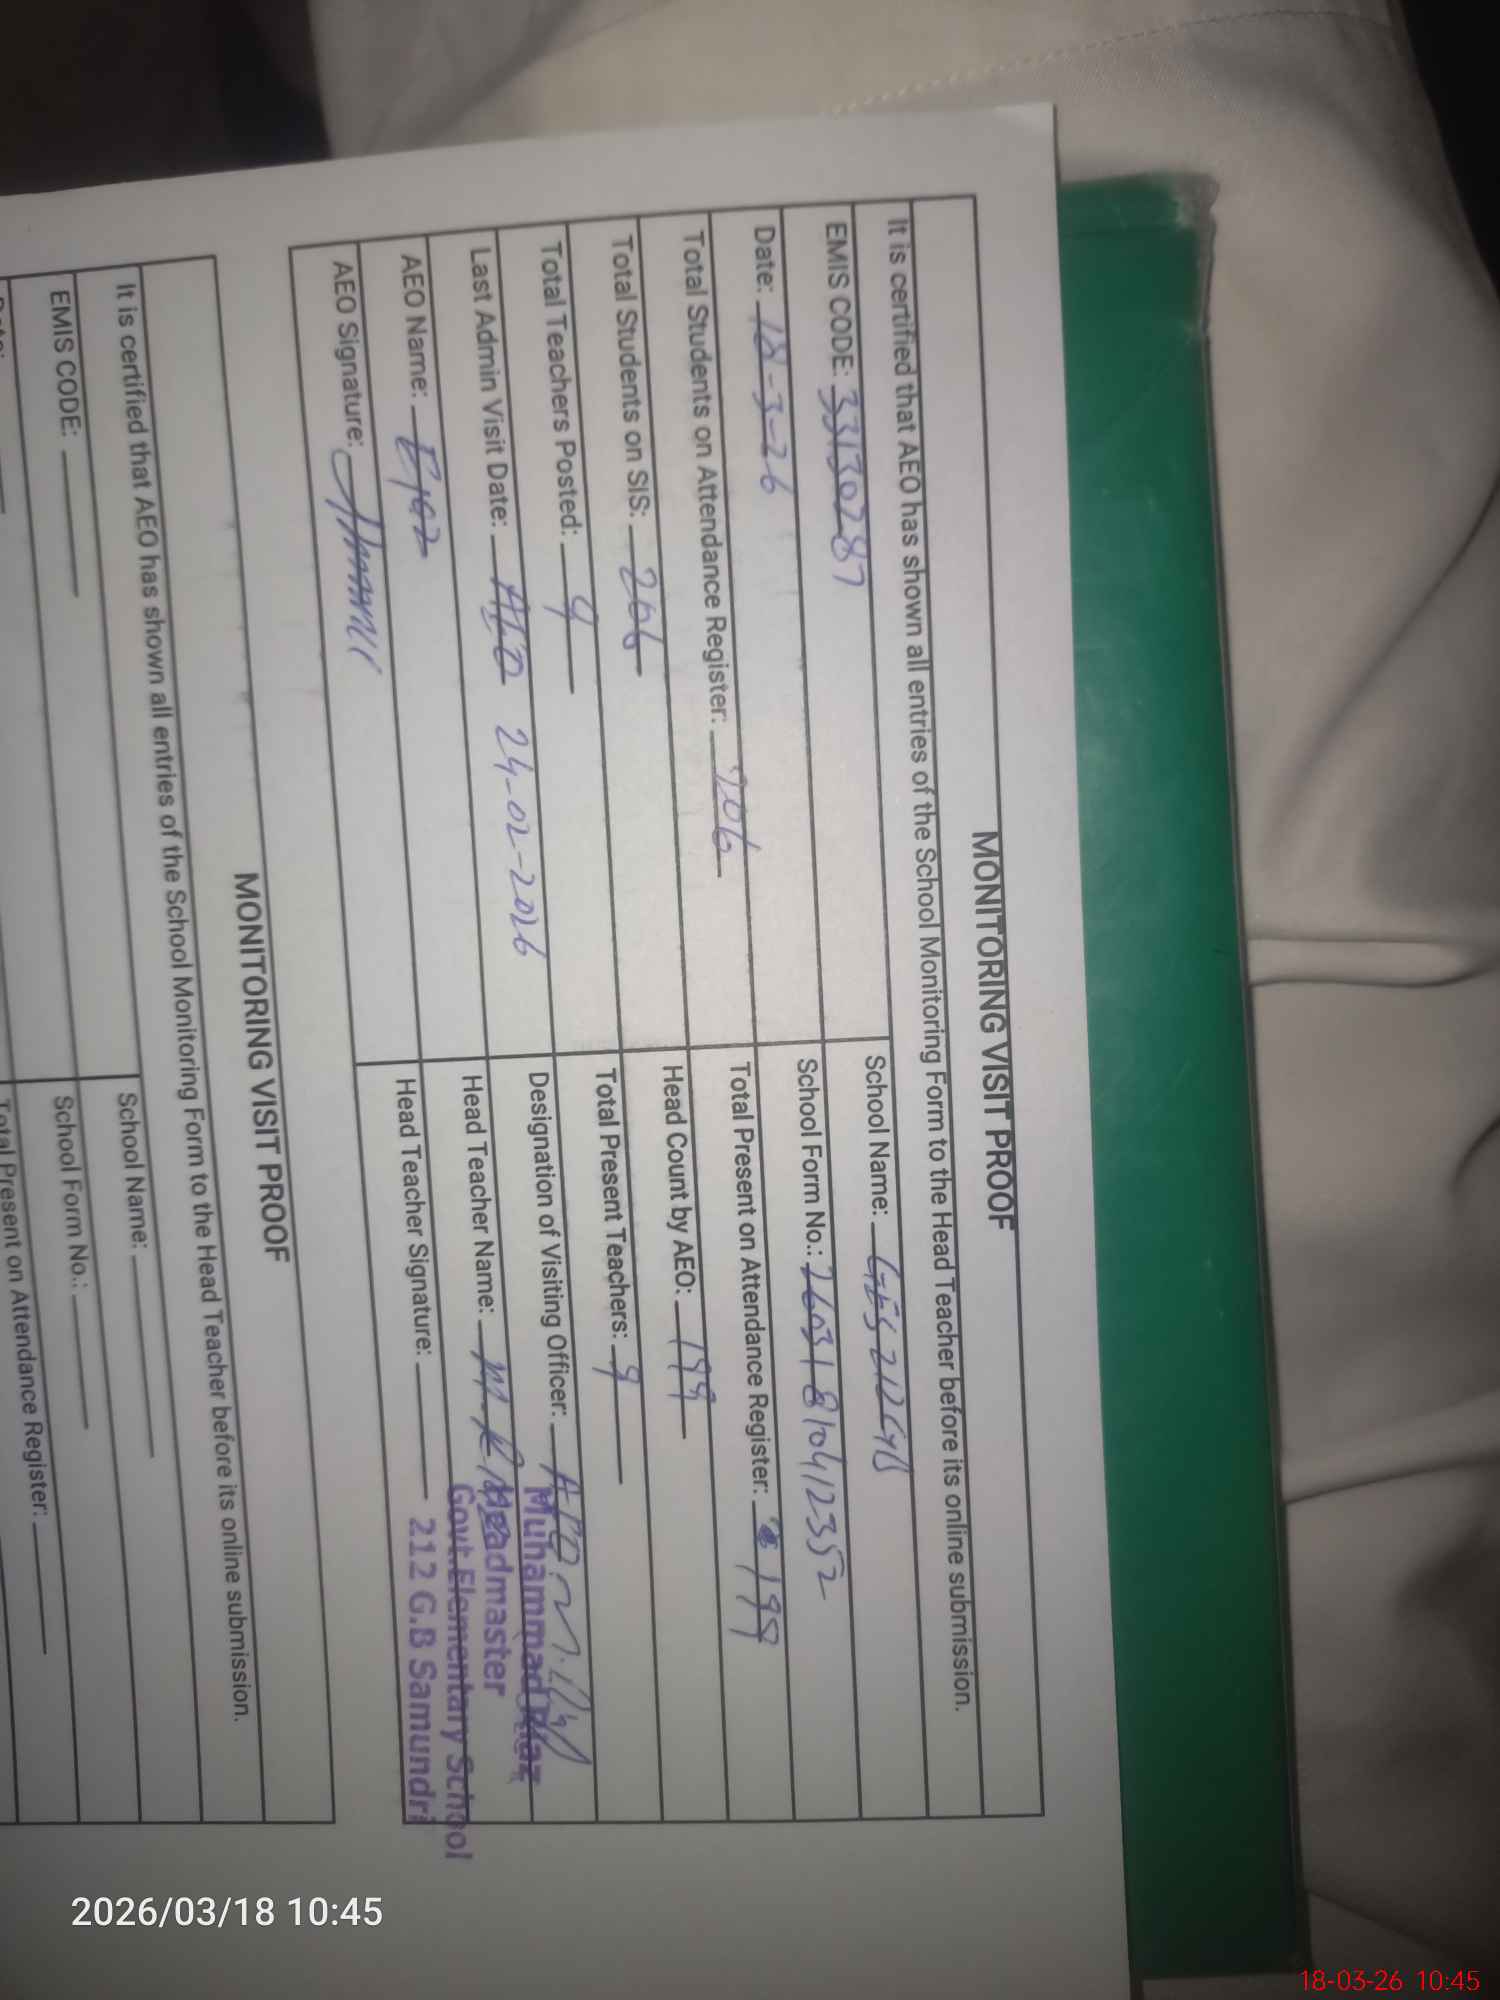 MONITORING VISIT PROOF
It is certified that AEO has shown all entries of the School Monitoring Form to the Head Teacher before its online submission.
EMIS CODE: 33130287
School Name: GES 212 GB
Date: 18-3-26
School Form No.: 26031810412352
Total Students on Attendance Register: 206
Total Present on Attendance Register: 199
Total Students on SIS: 206
Head Count by AEO: 199
Total Teachers Posted: 9
Total Present Teachers: 9
Last Admin Visit Date: AEO 24-02-2026
Designation of Visiting Officer: AEO
AEO Name: Ejaz
Head Teacher Name:
AEO Signature:
Head Teacher Signature:
Muhammad Riaz
Headmaster
Govt.Elementary School
212 G.B Samundri
MONITORING VISIT PROOF
It is certified that AEO has shown all entries of the School Monitoring Form to the Head Teacher before its online submission.
EMIS CODE:
School Name:
Date:
School Form No.:
Total Present on Attendance Register:
2026/03/18 10:45
18-03-26 10:45